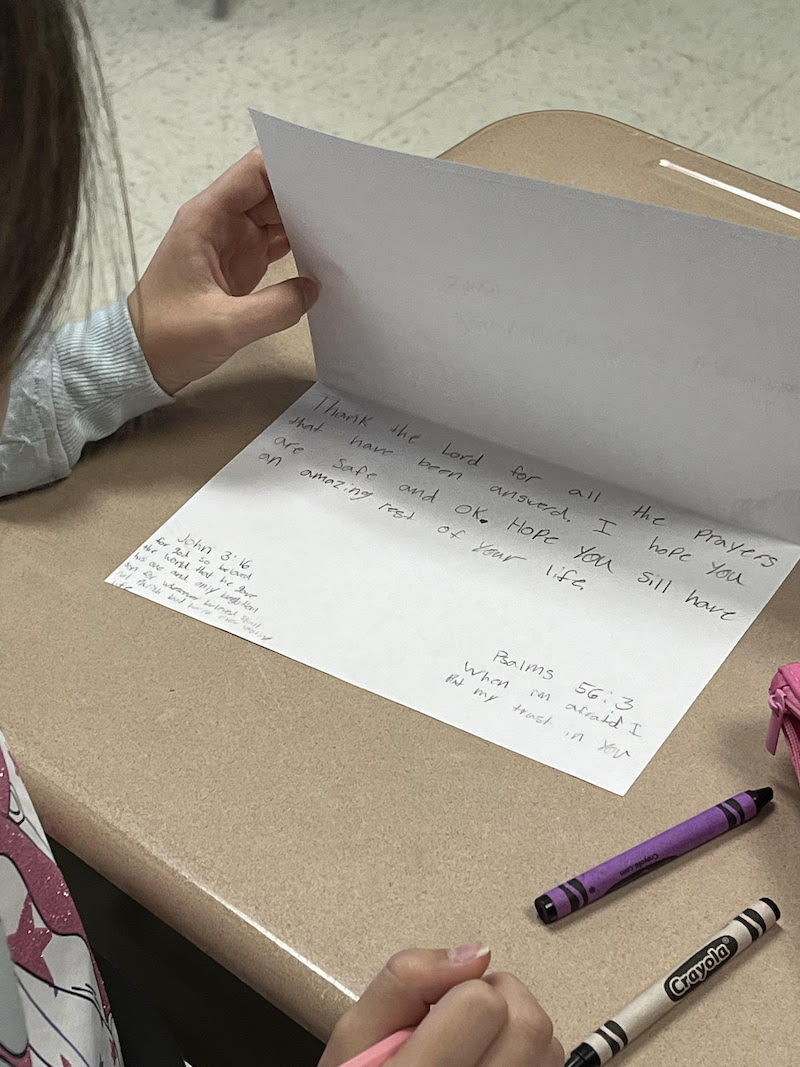 Thank the Lord for all the Prayers
that have been answerd. I hope You
are safe and OK. Hope You sill have
an amazing rest of Your life.
John 3:16
for god so beloved
the world that he gave
his one and only
son for whoever beleved shall
not Parish but have ever
life
Psalms 56:3
When im afraid I
Put my trust in You
Crayola.com
Crayola